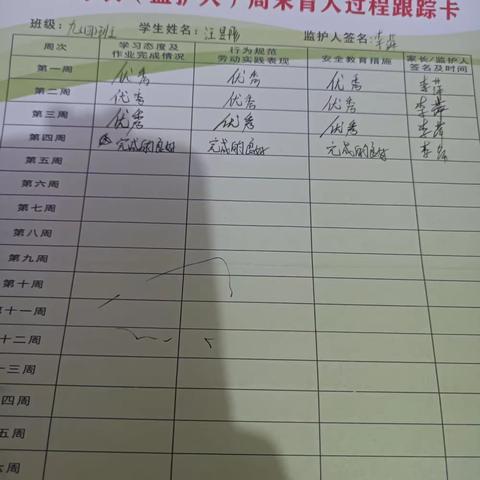 (监护人)周末育人过程跟踪卡
班级: 学生姓名: 监护人签名:李
周次 学习态度及作业完成情况 行为规范劳动实践表现 安全教育措施 家长/监护人签名及时间
第一周 优秀 优秀 优秀 李
第二周 优秀 优秀 优秀 李
第三周 优秀 优秀 优秀 李
第四周 完成的良好 完成的良好 完成的良好 李
第五周
第六周
第七周
第八周
第九周
第十周
十一周
十二周
十三周
四周
五周
六周